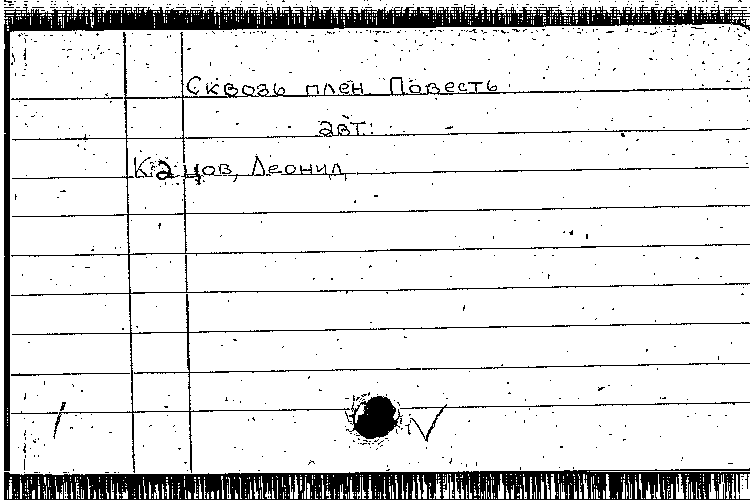 Сквозь плен. Повесть
авт.:
Кацов, Леонид